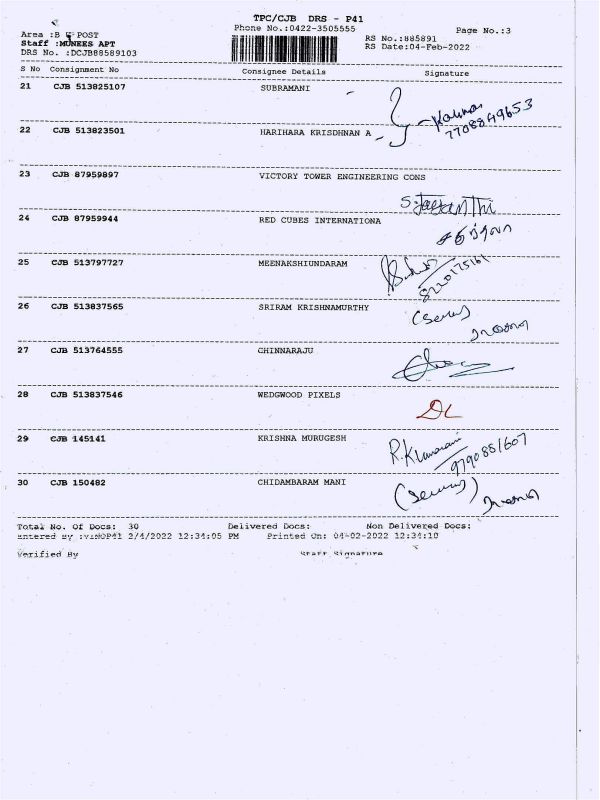 TPC/CJB DRS - P41
Phone No.:0422-3505555
Page No.:3
Area :B POST
Staff :MUNEES APT
DRS No. :DCJB88589103
RS No.:885891
RS Date:04-Feb-2022
S No Consignment No Consignee Details Signature
21 CJB 513825107 SUBRAMANI
7708849653
22 CJB 513823501 HARIHARA KRISDHNAN A
23 CJB 87959897 VICTORY TOWER ENGINEERING CONS
S. Jayanthi
24 CJB 87959944 RED CUBES INTERNATIONA
25 CJB 513797727 MEENAKSHIUNDARAM
8220175161
26 CJB 513837565 SRIRAM KRISHNAMURTHY
27 CJB 513764555 CHINNARAJU
28 CJB 513837546 WEDGWOOD PIXELS
29 CJB 145141 KRISHNA MURUGESH
9790851607
30 CJB 150482 CHIDAMBARAM MANI
Total No. Of Docs: 30 Delivered Docs: Non Delivered Docs:
Entered By :VINOP41 2/4/2022 12:34:05 PM Printed On: 04-02-2022 12:34:10
Verified By Staff Signature